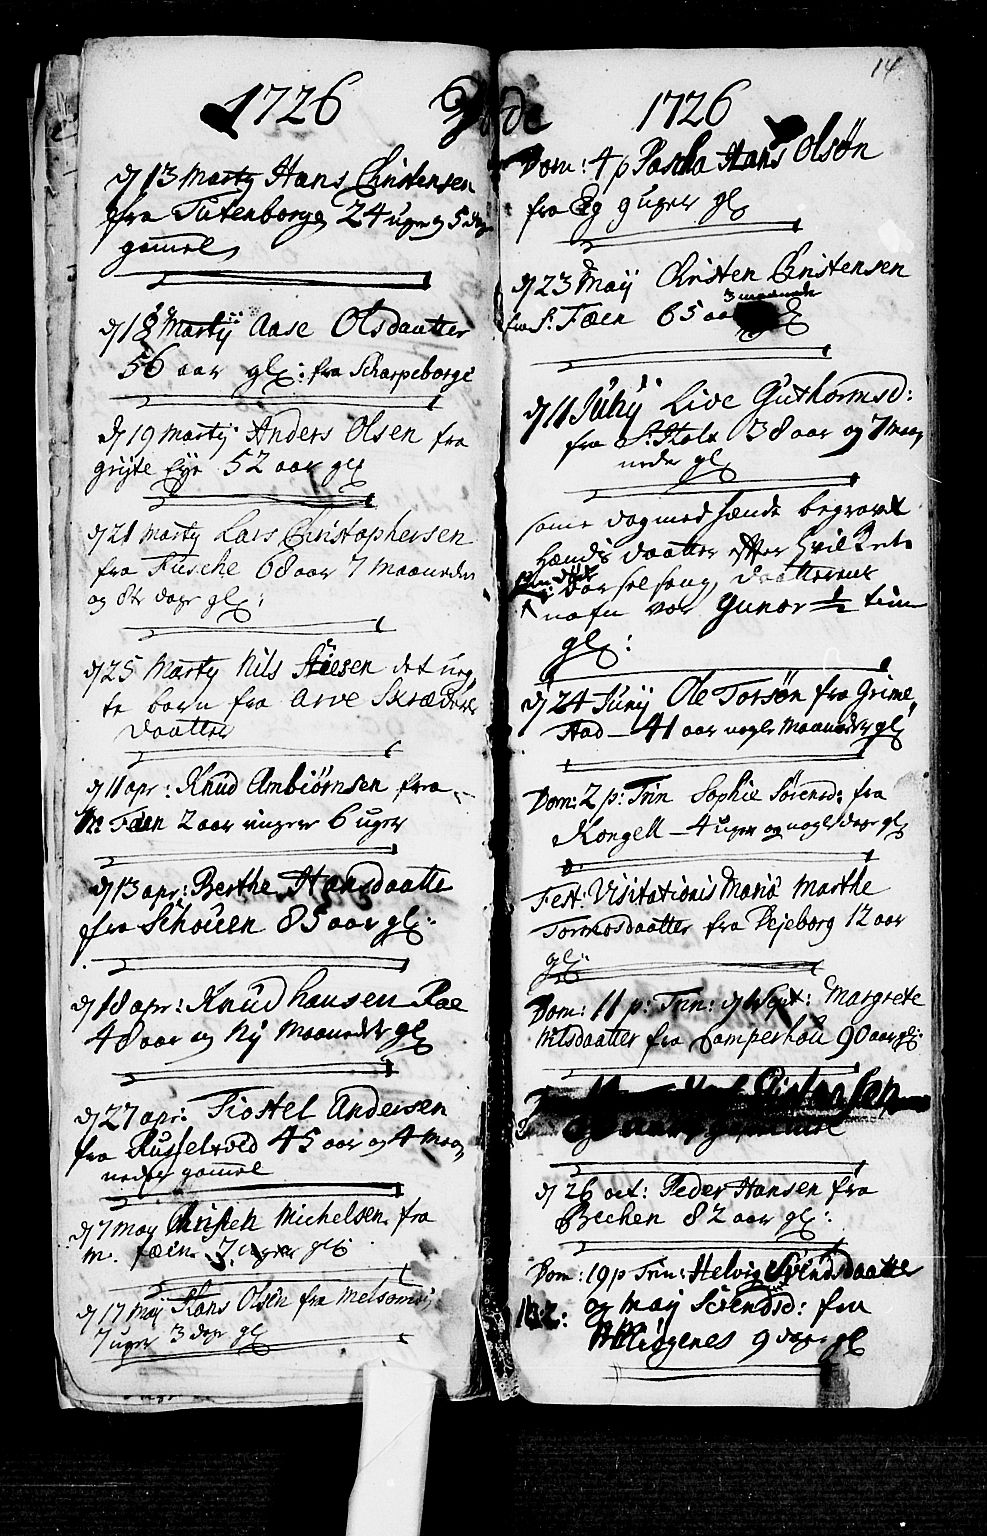 1726 Døde
d 13 Marty Hans Christensen
fra Tutenborg 24 uger og 5 dage
gamel
d 18 Martij Aase Olsdaatter
56 aar gl: fra Scharpeborge
d 19 Marty Anders Olsen fra
gryte Eye 52 aar gl
d 21 Marty Lars Christophersen
fra Fusche 68 aar 7 Maaneder
og 8te dage gl:
d 25 Marty Nils det ueg,,
te barn fra Arve Skræders
daatter
d 11 apr: Knud Ambiørnsen fra
Fæen 2 aar 6 uger
d 13 apr: Berthe Hansdaatte
fra Schouen 85 aar gl:
d 18 apr: Knud hansen Roe
48 aar og Ny Maaneder gl
d 27 apr: Tiostel Andersen
fra Russeltvid 45 aar og 4 Maa,,
neder gamel
d 7 May Christen Michelsen fra
m. fæen 7 uger gl
d 17 Maj Hans Olsen fra Melsom
7 uger 3 dage gl
14
1726
Dom: 4 p Pascha Hans Olsøn
fra Eg 9 uger gl
d 23 Maij Christen Christensen
3 maanede
fra S: Fæen 65 aar gl
d 11 Juny Live Guthormsd:
fra S: Stole 38 aar og 7 Maa,,
neder gl
same dag med hænde begravet
hændis daatter efter
daatterens
nafn var Gunor 1/2 time
gl:
d 24 Junij Ole Torsøn fra Grime,,
stad 41 aar nogle Maaneder gl
Dom: 2 p: Trin Sophie Sørensd: fra
Kongell 4 uger og nogle dage gl
Fest: Visitationis Mariæ Marthe
Tormosdaatter fra Pejeborg 12 aar
gl:
Dom: 11 p: Trin: d 1 Sept: Margrete
Nilsdaatter fra Camperhou 90 aar gl:
d 26 oct: Peder Hansen fra
Bechen 82 aar gl:
Dom: 19 p Trin: Helvig Svendsdaatter
og Maij Svendsd: fra
9 dage gl